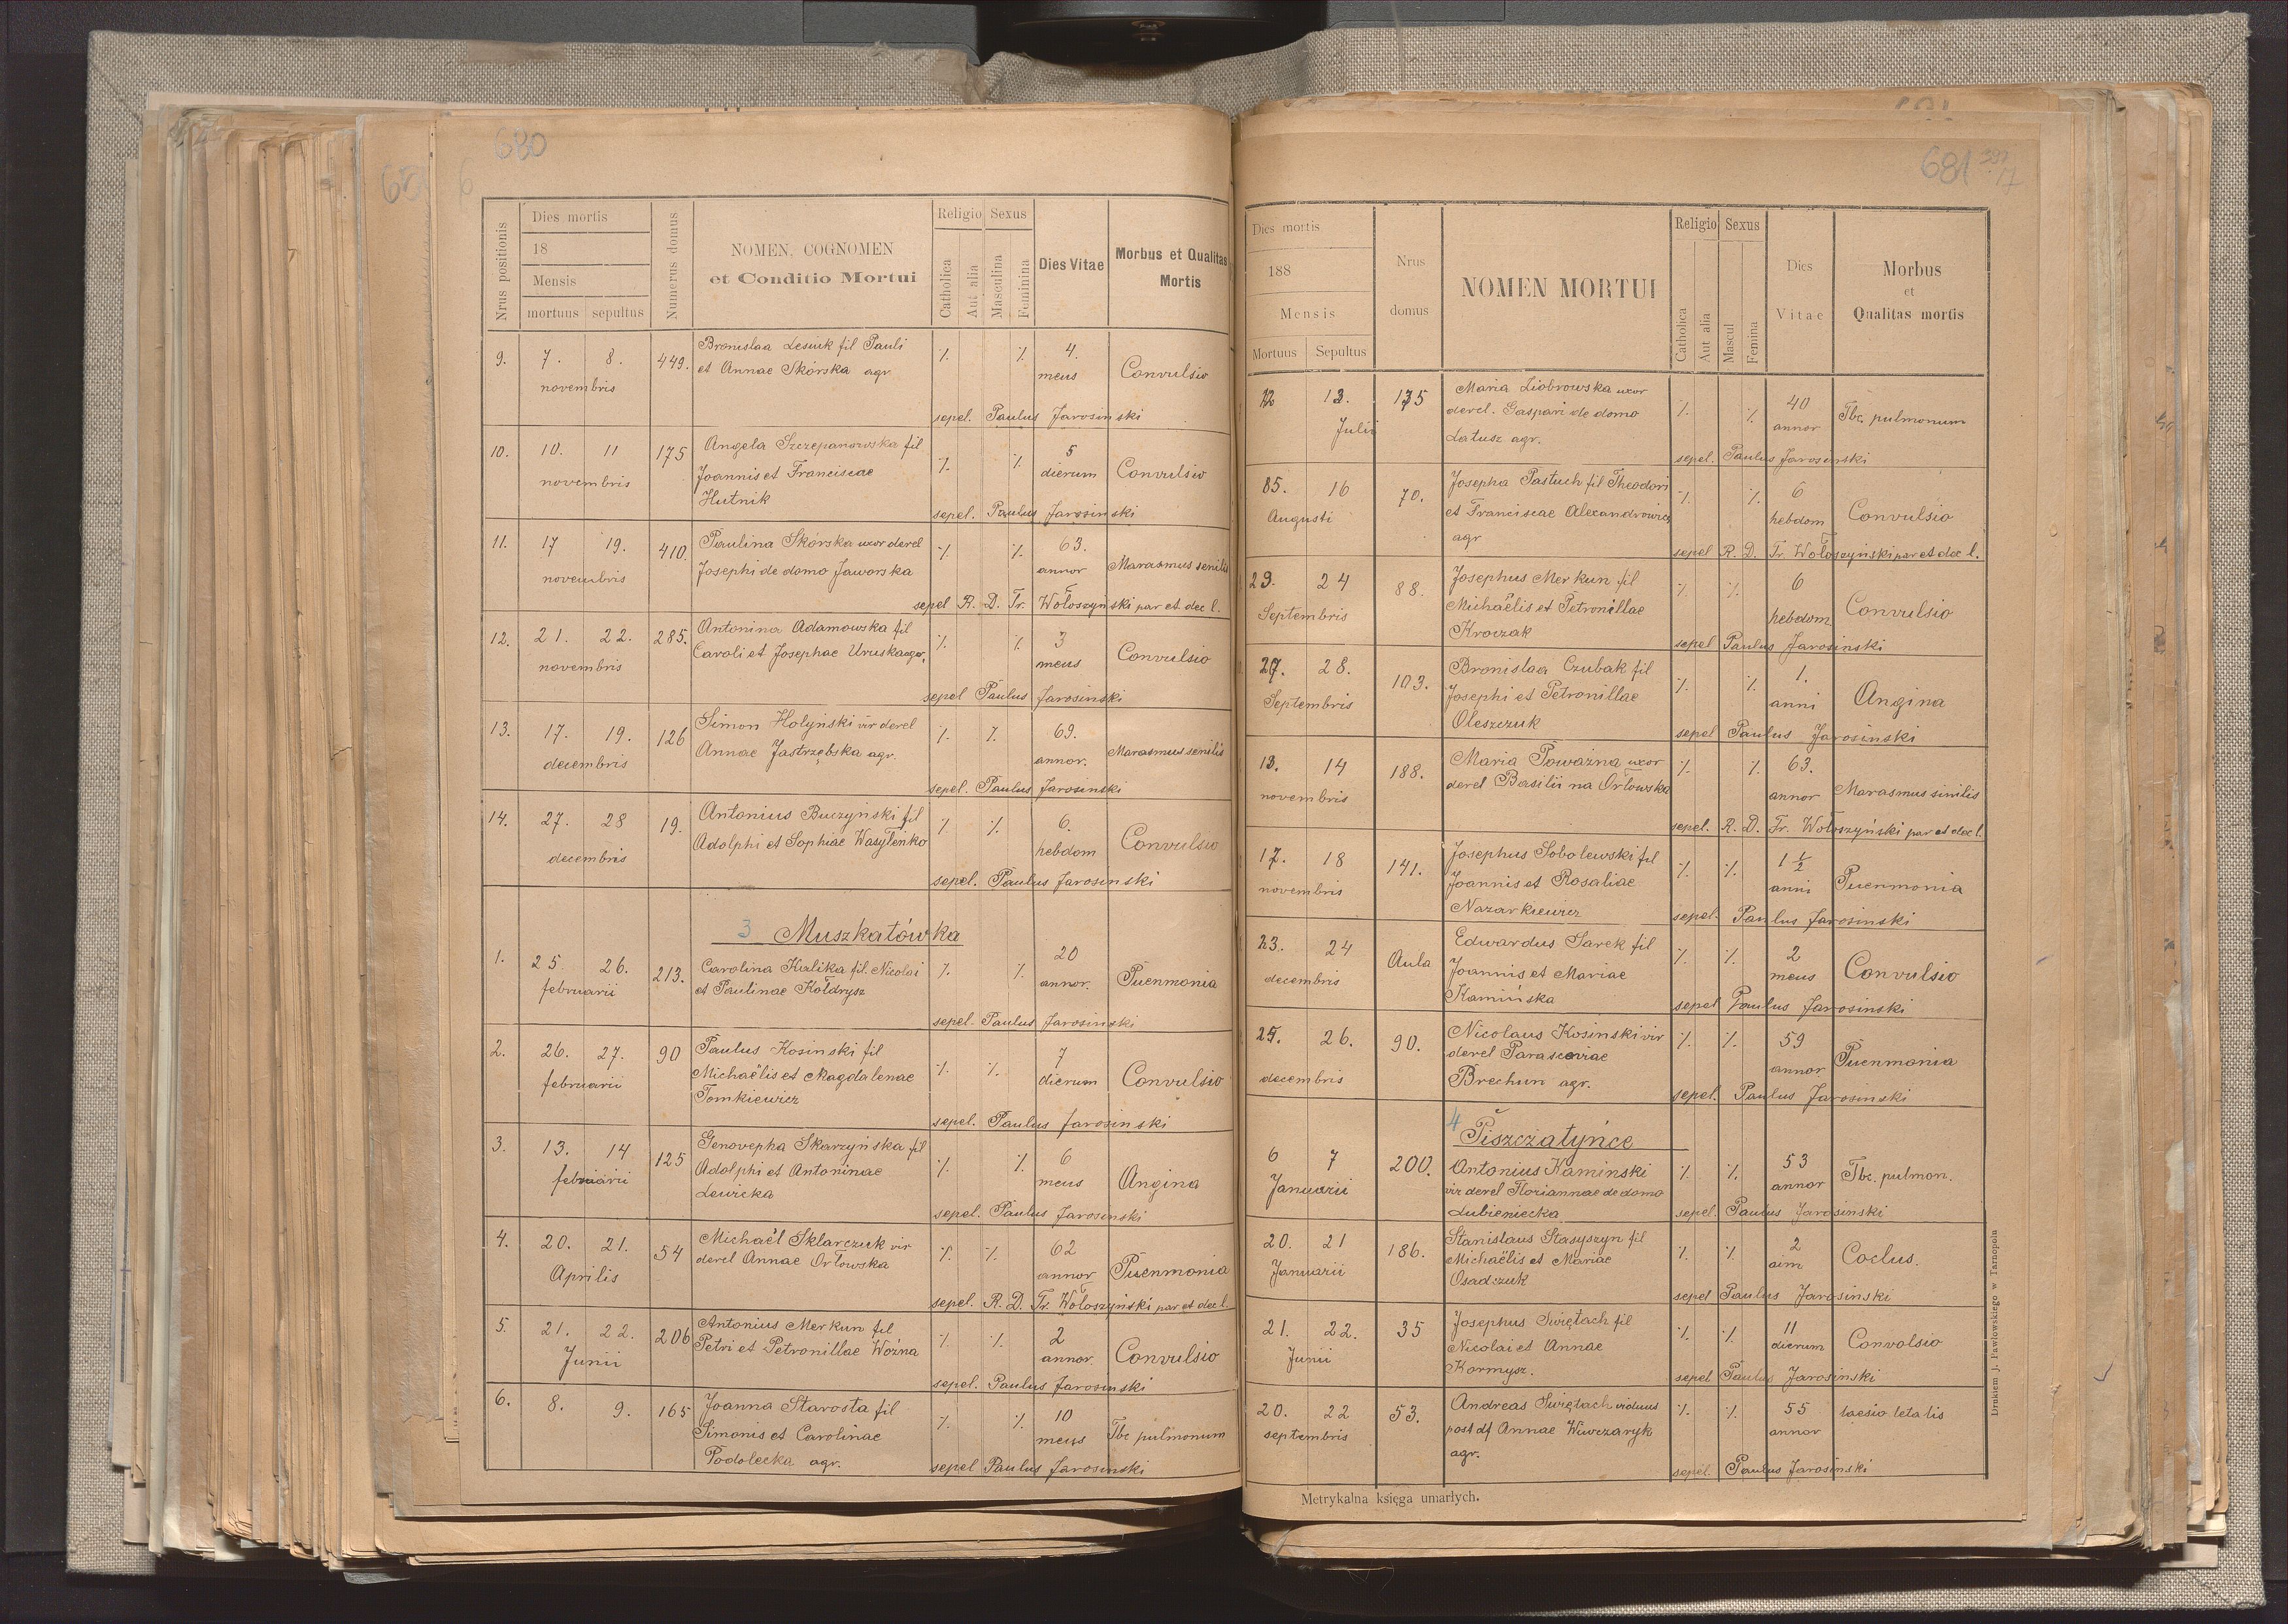 680
Nrus positionis
Dies mortis
18
Mensis
mortuus sepultus
Numerus domus
NOMEN, COGNOMEN
et Conditio Mortui
Religio Sexus
Catholica
Aut alia
Masculina
Feminina
Dies Vitae
Morbus et Qualitas
Mortis
9. 7. 8. 449. Bronislaa Lesiuk fil Pauli ⁒ ⁒ 4.
novembris et Annae Skórska agr. meus Convulsio
sepel. Paulus Jarosinski
10. 10. 11 175 Angela Szczepanowska fil ⁒ ⁒ 5
novembris Joannis et Franciscae dierum Convulsio
Hutnik
sepel. Paulus Jarosinski
11. 17 19. 410 Paulina Skórska uxor derel ⁒ ⁒ 63.
novembris Josephi de domo Jaworska annor Marasmus senilis
sepel R. D. Fr. Wołoszyński par et dec l.
12. 21. 22. 285. Antonina Adamowska fil ⁒ ⁒ 3
novembris Caroli et Josephae Uruska agr. meus Convulsio
sepel Paulus Jarosinski
13. 17. 19. 126 Simon Holyński vir derel ⁒ ⁒ 69.
decembris Annae Jastrzębska agr. annor. Marasmus senilis
sepel. Paulus Jarosinski
14. 27. 28 19. Antonius Buczyński fil ⁒ ⁒ 6.
decembris Adolphi et Sophiae Wasylenko hebdom Convulsio
sepel. Paulus Jarosinski
3 Muszkatówka
1. 25. 26. 213. Carolina Kulika fil. Nicolai ⁒ ⁒ 20
februarii et Paulinae Kołdrysz annor. Puenmonia
sepel. Paulus Jarosinski
2. 26. 27. 90 Paulus Kosinski fil ⁒ ⁒ 7
februarii Michaëlis et Magdalenae dierum Convulsio
Tomkiewicz
sepel. Paulus Jarosinski
3. 13. 14 125 Genovepha Skarzyńska fil ⁒ ⁒ 6
februarii Adolphi et Antoninae meus Angina
Lewicka
sepel. Paulus Jarosinski
4. 20. 21. 54 Michaël Sklarczuk vir ⁒ ⁒ 62
Aprilis derel Annae Orłowska annor Puenmonia
sepel. R. D. Fr. Wołoszyński par et dec l.
5. 21. 22. 206 Antonius Merkun fil ⁒ ⁒ 2
Junii Petri et Petronillae Woźna annor. Convulsio
sepel. Paulus Jarosinski
6. 8. 9. 165 Joanna Starosta fil ⁒ ⁒ 10
Simonis et Carolinae meus Tbc pulmonum
Podolecka agr.
sepel Paulus Jarosinski
681
Dies mortis
188
Mensis
Mortuus Sepultus
Nrus
domus
NOMEN MORTUI
Religio Sexus
Catholica
Aut alia
Mascul
Femina
Dies
Vitae
Morbus
et
Qualitas mortis
12 13. 175 Maria Ziobrowska uxor ⁒ ⁒ 40
Julii derel. Gaspari de domo annor Tbc. pulmonum
Latusz agr.
sepel. Paulus Jarosinski
85. 16 70. Josepha Pastuch fil Theodori ⁒ ⁒ 6
Augusti et Franciscae Alexandrowicz hebdom Convulsio
agr
sepel R. D. Fr. Wołoszyński par et dec l.
23. 24 88. Josephus Merkun fil ⁒ ⁒ 6
Septembris Michaëlis et Petronillae hebdom Convulsio
Kroczak
sepel Paulus Jarosinski
27. 28. 103. Bronislaa Czubak fil ⁒ ⁒ 1.
Septembris Josephi et Petronillae anni Angina
Oleszczuk
sepel Paulus Jarosinski
13. 14 188. Maria Poważna uxor ⁒ ⁒ 63.
novembris derel Basilii na Orłowska annor Marasmus sinilis
sepel. R. D. Fr. Wołoszyński par et dec l.
17. 18 141. Josephus Sobolewski fil ⁒ ⁒ 1 1/2
novembris Joannis et Rosaliae anni Puenmonia
Nazarkiewicz
sepel. Paulus Jarosinski
23. 24 Aula Edwardus Sarek fil ⁒ ⁒ 2
decembris Joannis et Mariae meus Convulsio
Kamińska
sepel Paulus Jarosinski
25. 26. 90. Nicolaus Kosinski vir ⁒ ⁒ 59
decembris derel Parasceviae annor Puenmonia
Brechun agr.
sepel. Paulus Jarosinski
4 Piszczatyńce
6 7 200. Antonius Kaminski ⁒ ⁒ 53
Januarii vir derel Floriannae de domo annor Tbc. pulmon.
Lubieniecka
sepel. Paulus Jarosinski
20. 21 186. Stanislaus Stasyszyn fil ⁒ ⁒ 2
Januarii Michaëlis et Mariae Coclus.
Osadczuk
sepel Paulus Jarosinski
21. 22. 35 Josephus Swiętach fil ⁒ ⁒ 11
Junii Nicolai et Annae dierum Convolsio
Kormysz.
sepel Paulus Jarosinski
20. 22 53. Andreas Swiętach viduus ⁒ ⁒ 55 laesio letalis
septembris post df Annae Wiwczaryk annor
agr.
sepel. Paulus Jarosinski
Metrykalna księga umarłych.
Drukiem J. Pawłowskiego w Tarnopolu